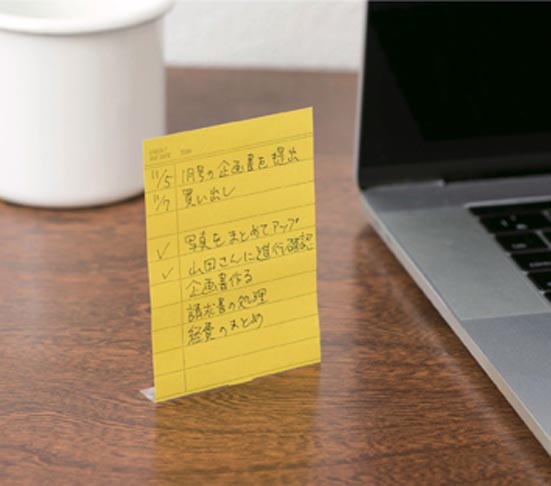 11/5 1月号の企画書を提出
11/7 買い出し
✓ 写真をまとめてアップ
✓ 山田さんに進行確認
企画書作る
請求書の処理
経費のまとめ